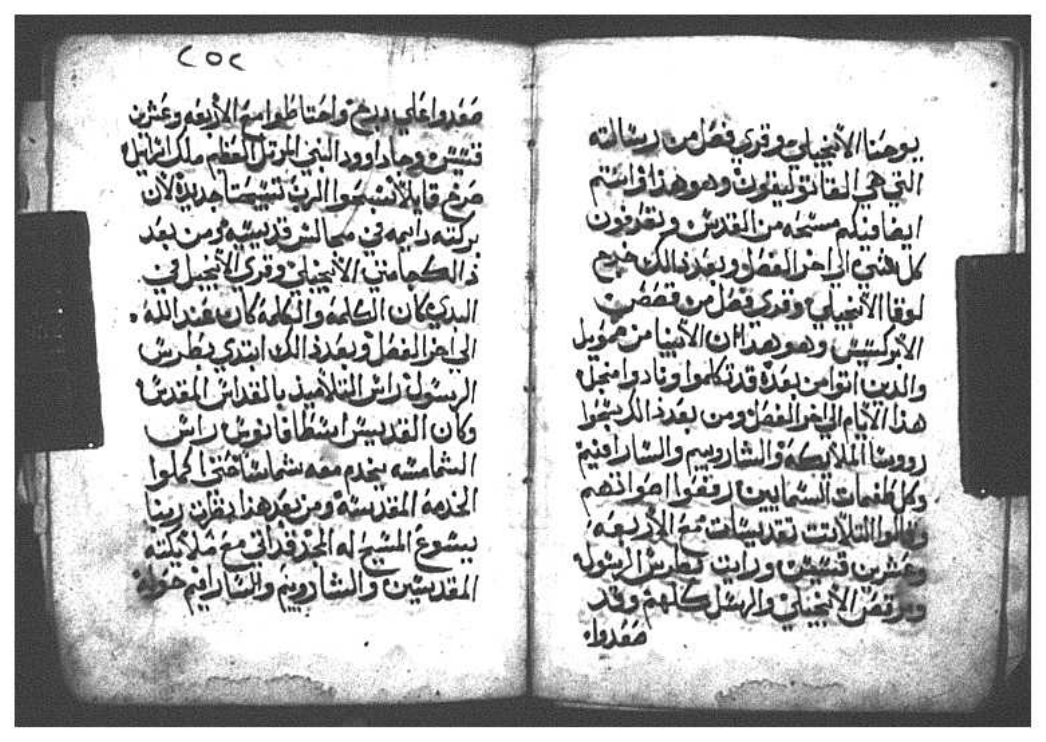 يوحنا الانجيلي وقري فصل من رسالته
التي هي القاتوليقون وهو هذا وانتم
ايضا فيكم مسحه من القدس وتعرفون
كل شي الي اخر الفصل وبعد ذالك خرج
لوقا الانجيلي وقري فصل من قصص
الابركسيس وهو هدا ان الانبيا من صمويل
والدين اتوا من بعده قد تكلموا ونادوا من اجل
هذا الايام الي اخر الفصل ومن بعد ذالك سبحوا
رووسا الملايكه والشاروبيم والسارافيم
وكل طغمات السمايين رفعوا اصواتهم
وقالوا التلاتت تقديسات مع الاربعه
وعشرين قسيس ورايت بطرس الرسول
ومرقص الانجيلي والرسل كلهم وقد
صعدوا
٢٥٢
صعدوا علي درج واحتاطوا مع الاربعه وعشرين
قسيس وجا داوود النبي المرتل العظم ملك اسراييل
صرخ قايلا سبحوا الرب تسبيحتا جديدة لان
بركته دايمه في مجالس قديسيه ومن بعد
ذالك جا متي الانجيلي وقري الانجيل في
البدي كان الكلمة والكلمة كان عند الله
الي اخر الفصل وبعد ذالك ابتدي بطرس
الرسول راس التلاميذ بالقداس المقدس
وكان القديس اسطافانوس راس
الشمامسه يخدم معه شماسا حتي اكملوا
الخدمة المقدسة ومن بعد هذا نظرت ربنا
يسوع المسيح له المجد قد اتي مع ملايكته
المقدسين والشاروبيم والسارافيم حوله